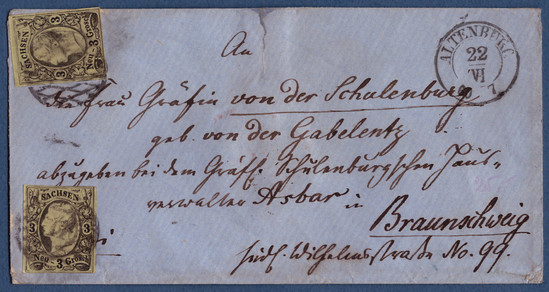 SACHSEN
3 3
Neu - 3 Grosch.
ALTENBURG
22
VI
7
An
die Frau Gräfin von der Schulenburg
geb. von der Gabelentz
abzugeben bei dem Gräfl. Schulenburgschen Haus-
verwalter Asbar in
Braunschweig
südl. Wilhelmsstraße No. 99.
SACHSEN
3 3
Neu - 3 Grosch.